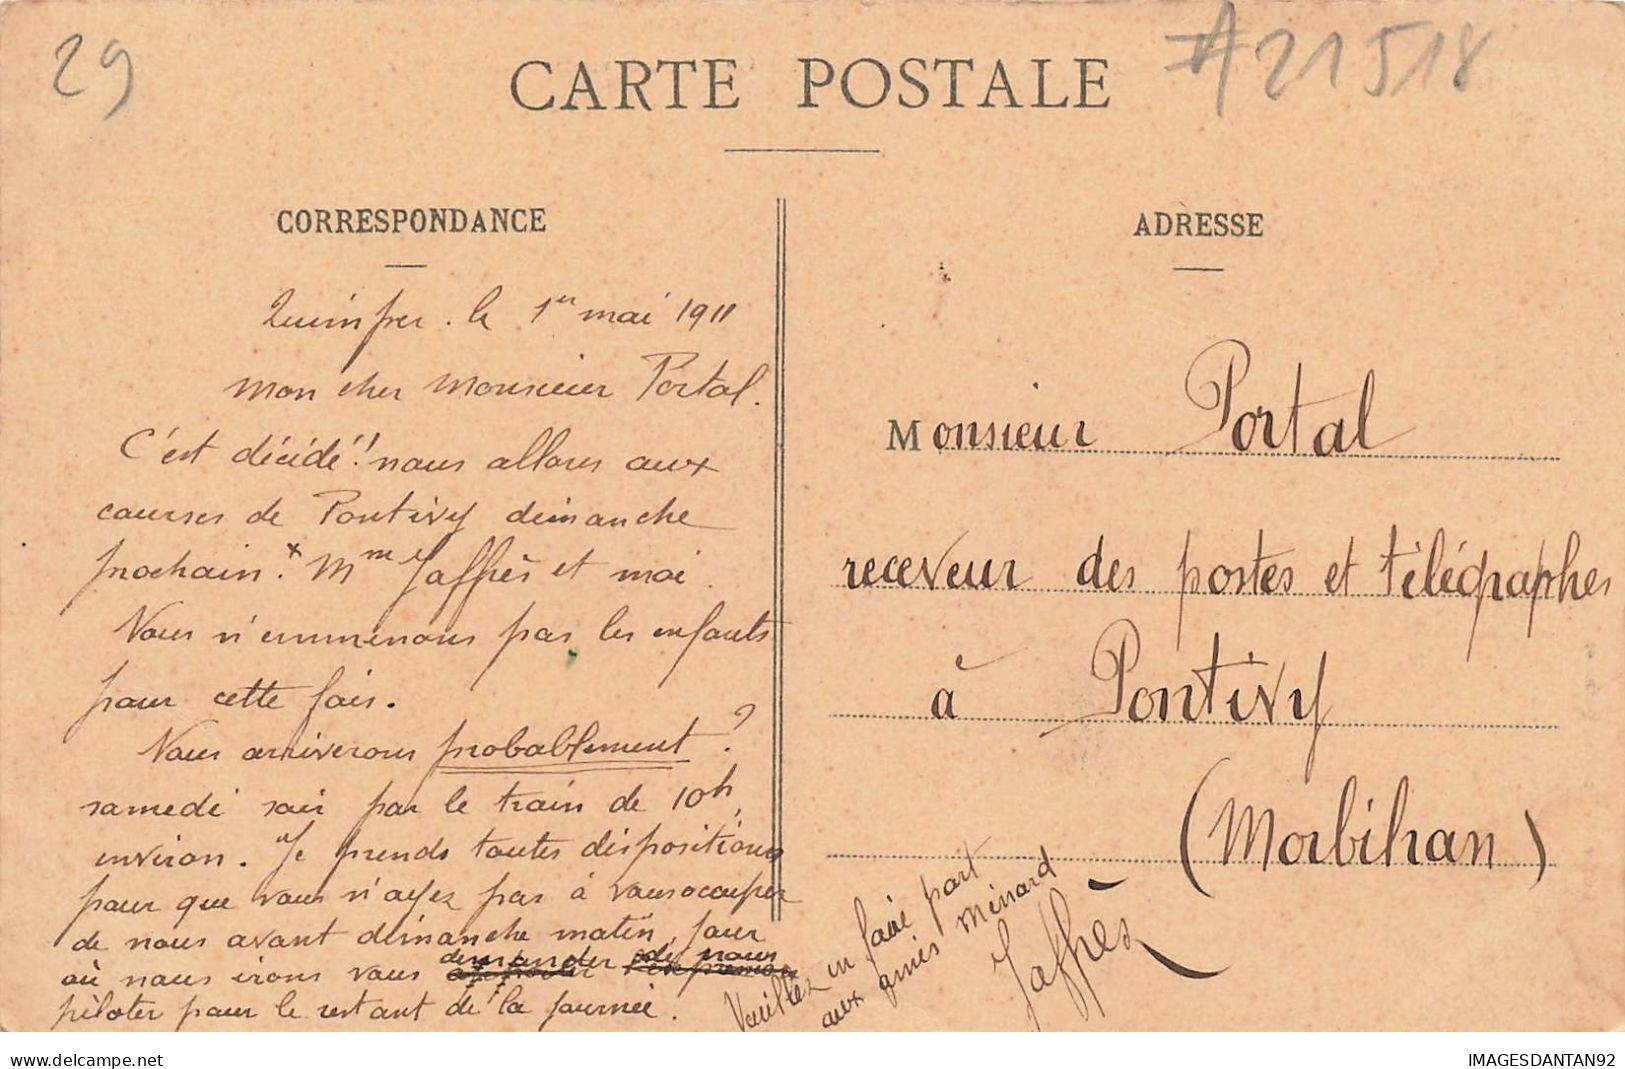 29
#21518
CARTE POSTALE
CORRESPONDANCE
Quimper. le 1er mai 1911
Mon cher Monsieur Portal.
C'est décidé! nous allons aux
courses de Pontivy dimanche
prochain. x Mme Jaffrès et moi.
Nous n'emmenons pas les enfants
pour cette fois.
Nous arriverons probablement?
samedi soir par le train de 10h,
environ. Je prends toutes dispositions
pour que vous n'ayez pas à vous occuper
de nous avant dimanche matin, jour
où nous irons vous demander de nous
piloter pour le restant de la journée.
Veuillez en faire part
aux amis Ménard
Jaffrès
ADRESSE
Monsieur Portal
receveur des postes et télégraphes
à Pontivy
(Morbihan)
www.delcampe.net
IMAGESDANTAN92